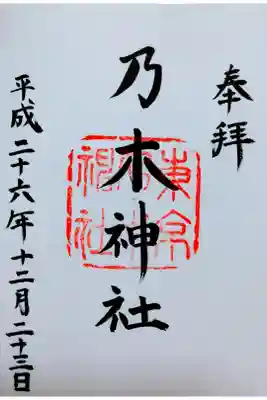 奉拝
乃木神社
平成二十六年十二月二十三日
東京